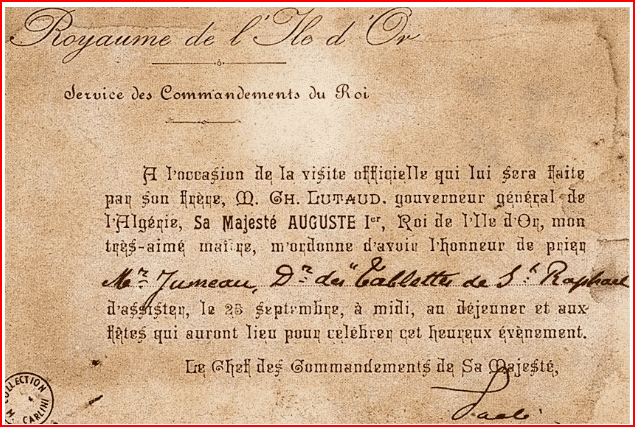 Royaume de l'Ile d'Or
Service des Commandements du Roi
A l'occasion de la visite officielle qui lui sera faite
par son frère, M. CH. LUTAUD, gouverneur général de
l'Algérie, Sa Majesté AUGUSTE Ier, Roi de l'Ile d'Or, mon
très-aimé maître, m'ordonne d'avoir l'honneur de prier
Mr. Jumeau, Dr. des "Tablettes de St. Raphael
d'assister, le 25 septembre, à midi, au déjeuner et aux
fêtes qui auront lieu pour célébrer cet heureux évènement.
Le Chef des Commandements de Sa Majesté,
COLLECTION
CARLINI